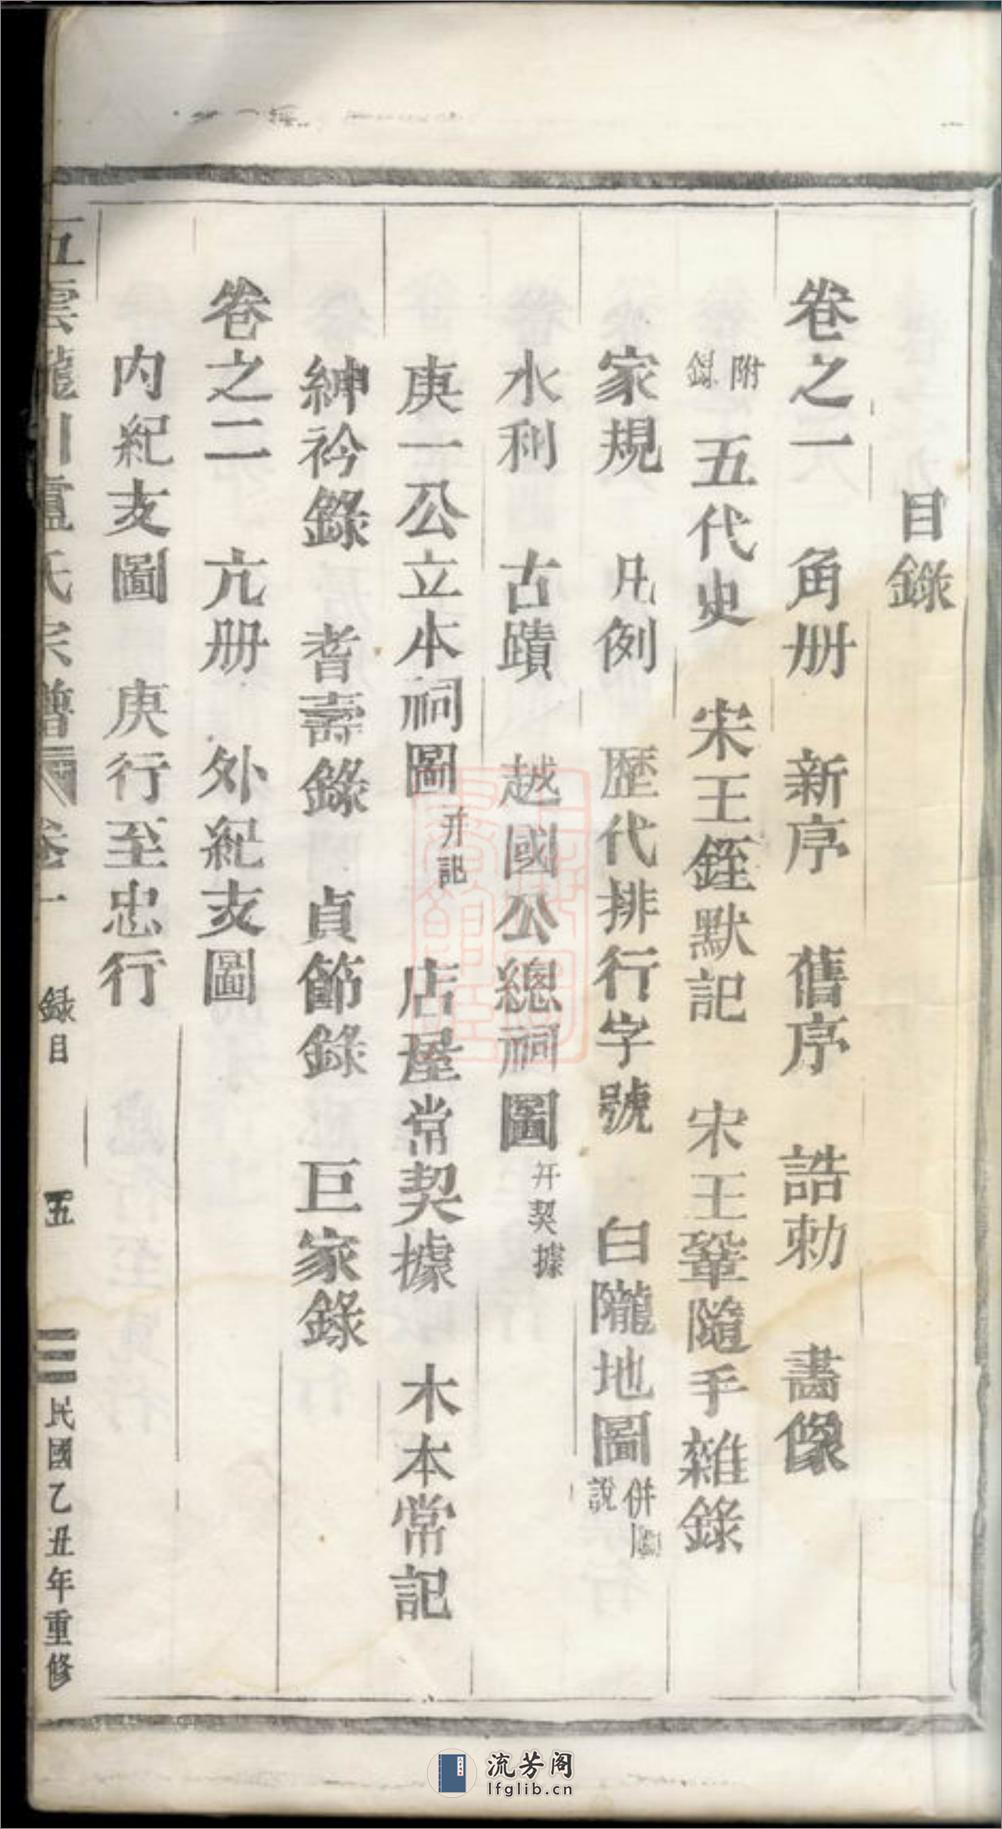 目錄
卷之一 角册 新序 舊序 誥勅 畵像
附錄 五代史 宋王銍默記 宋王鞏隨手雜錄
家規 凡例 歷代排行字號 白隴地圖 併說
水利 古蹟 越國公總祠圖 幷契據
庚一公立本祠圖 幷記 店屋常契據 木本常記
紳衿錄 耆壽錄 貞節錄 巨家錄
卷之二 亢册 外紀支圖
內紀支圖 庚行至忠行
五雲龍川盧氏宗譜 卷一 錄目 五 民國乙丑年重修
流芳阁
lfglib.cn